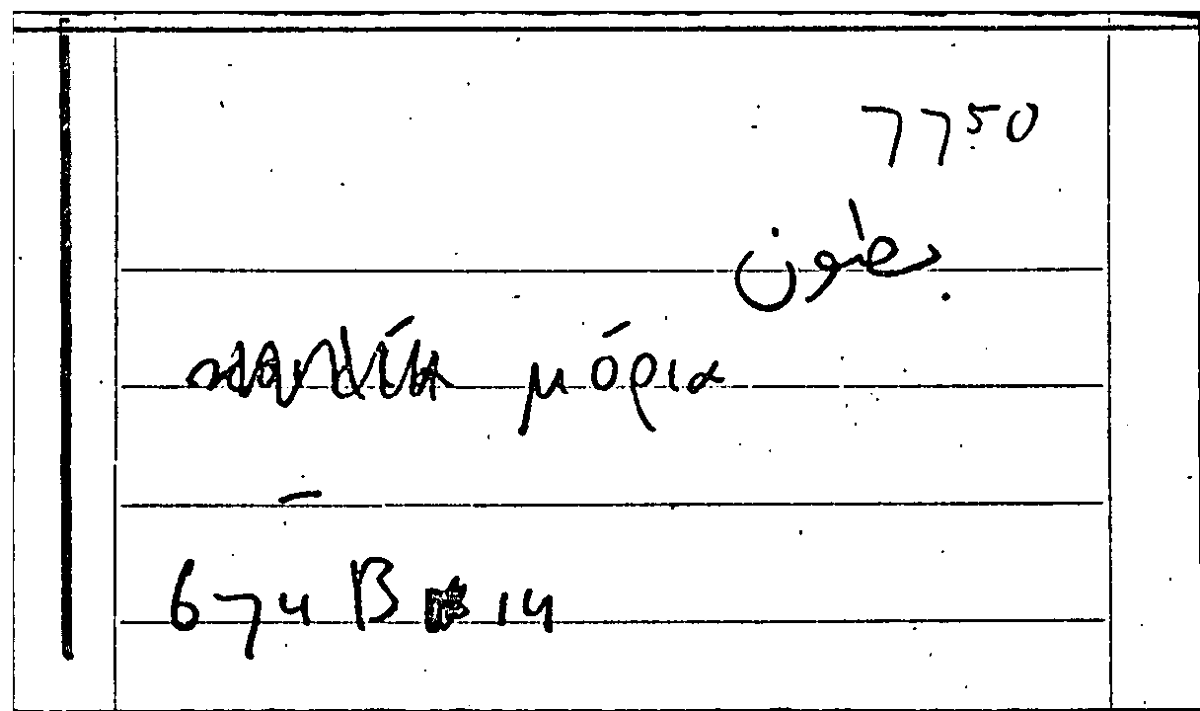 7750
بطون
μόρια
674 B 14